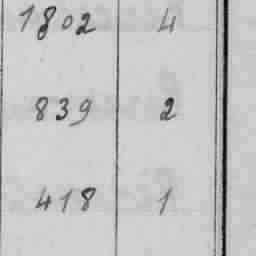 1802 4
839 2
418 1